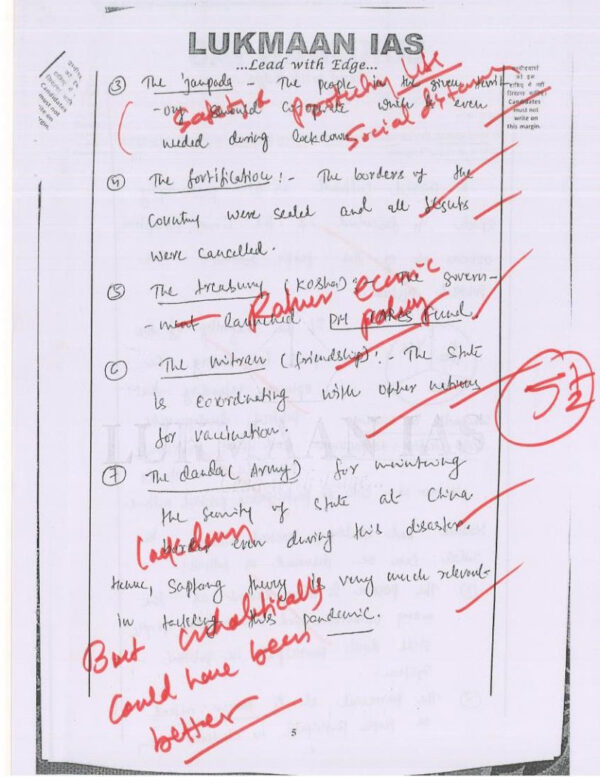 LUKMAAN IAS
...Lead with Edge...
Candidates
must not
write on
margin.
उम्मीदवारों
को इस
Candidates
must not
write on
this margin.
③ The Janpada - The people in the given territ-
Like
-ory should cooperate which is even
Social distancing
needed during lockdown.
④ The fortification :- The borders of the
Country were sealed and all
were cancelled.
⑤ The treasury (Kosha) :- The govern-
Rather economic
-ment launched PM CARES Fund.
policy
⑥ The mitran (friendship) :- The State
is coordinating with other nations
for vaccination.
5 1/2
⑦ The danda (Army) for maintaining
the security of state at China
border even during this disaster.
Hence, Saptang theory is very much relevant
in tackling this pandemic.
But
could have been
better
5